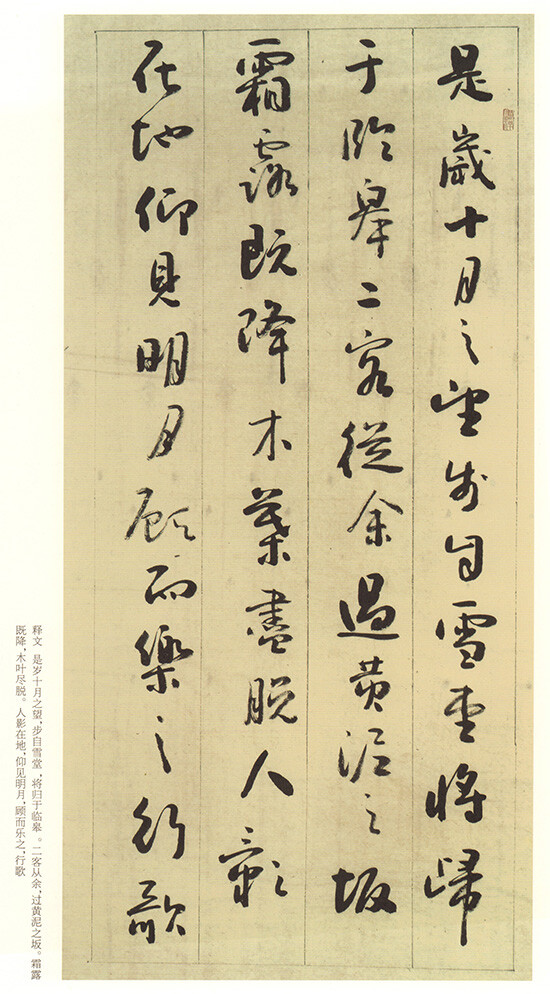 是歲十月之望步自雪堂將歸
于臨皋二客從余過黄泥之坂
霜露既降木葉盡脱人影
在地仰見明月顧而樂之行歌
释文 是岁十月之望,步自雪堂,将归于临皋。二客从余,过黄泥之坂。霜露
既降,木叶尽脱。人影在地,仰见明月,顾而乐之,行歌